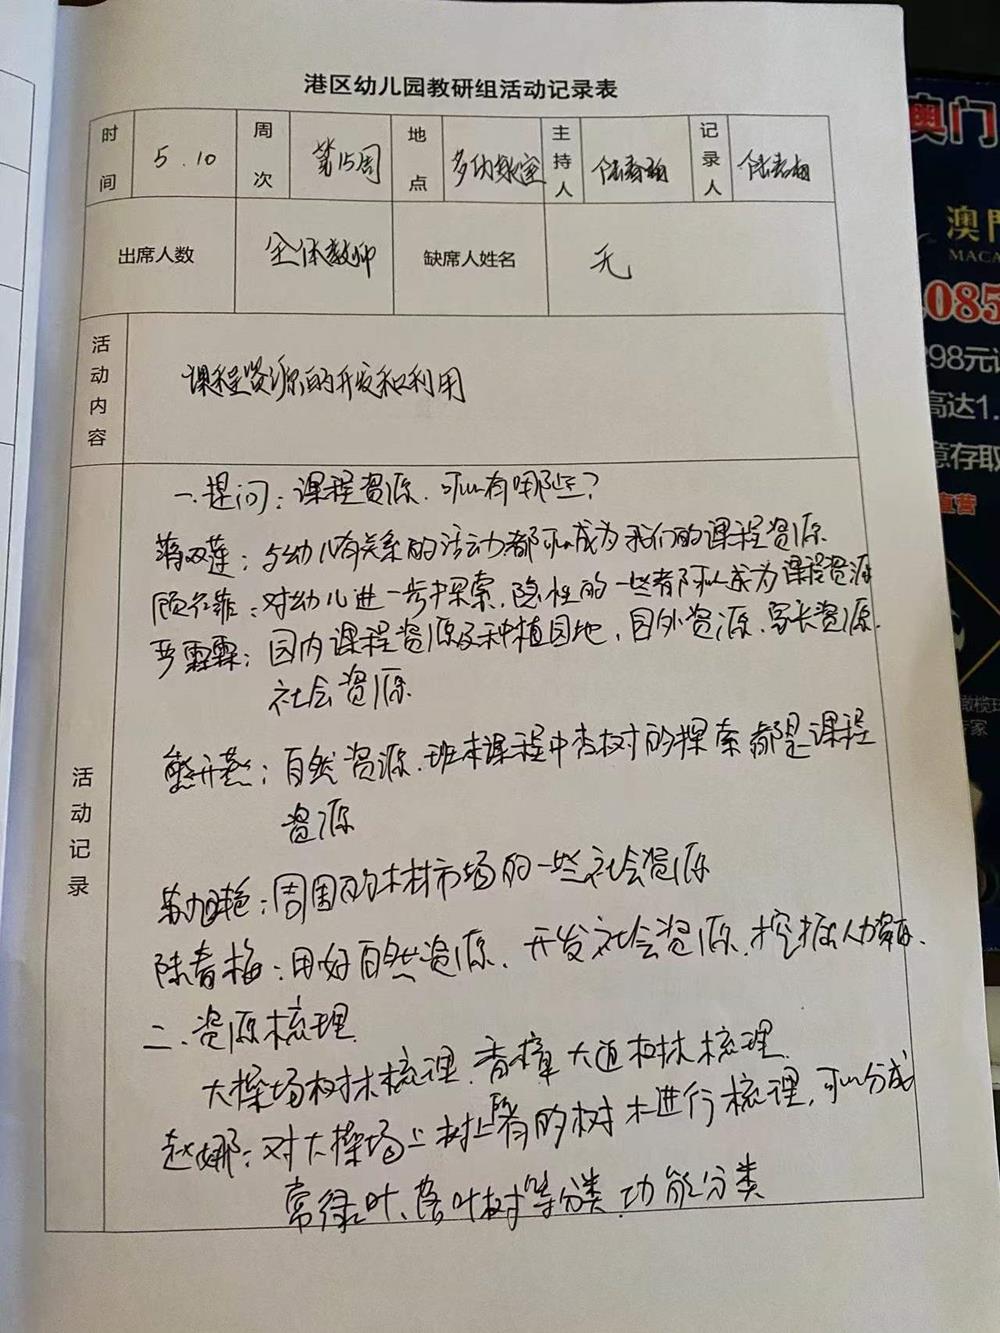 港区幼儿园教研组活动记录表
时间 5.10 周次 第15周 地点 多功能室 主持人 记录人
出席人数 全体教师 缺席人姓名 无
活动内容 课程资源的开发和利用
活动记录
一、提问：课程资源可以有哪些？
蒋双莲：与幼儿有关系的活动都可以成为我们的课程资源
对幼儿进一步探索，隐性的一些都可以成为课程资源
严霖霖：园内课程资源及种植园地，园外资源、家长资源
社会资源
熊开燕：自然资源、班本课程中杏树的探索都是课程
资源
周围的木材市场的一些社会资源
陈春梅：用好自然资源、开发社会资源、挖掘人力资源.
二、资源梳理
大操场树木梳理、香樟大道树木梳理
赵娜：对大操场上树上所有的树木进行梳理，可以分成
常绿叶、落叶树等分类，功能分类
澳门
澳門
MACA
085
298元
高达1.
意存取
直营